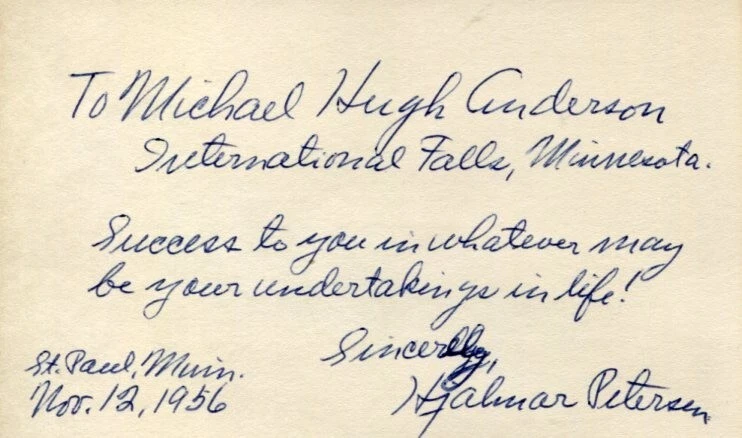 To Michael Hugh Anderson
International Falls, Minnesota.
Success to you in whatever may
be your undertakings in life!
Sincerely,
St. Paul, Minn.
Nov. 12, 1956
Hjalmar Petersen